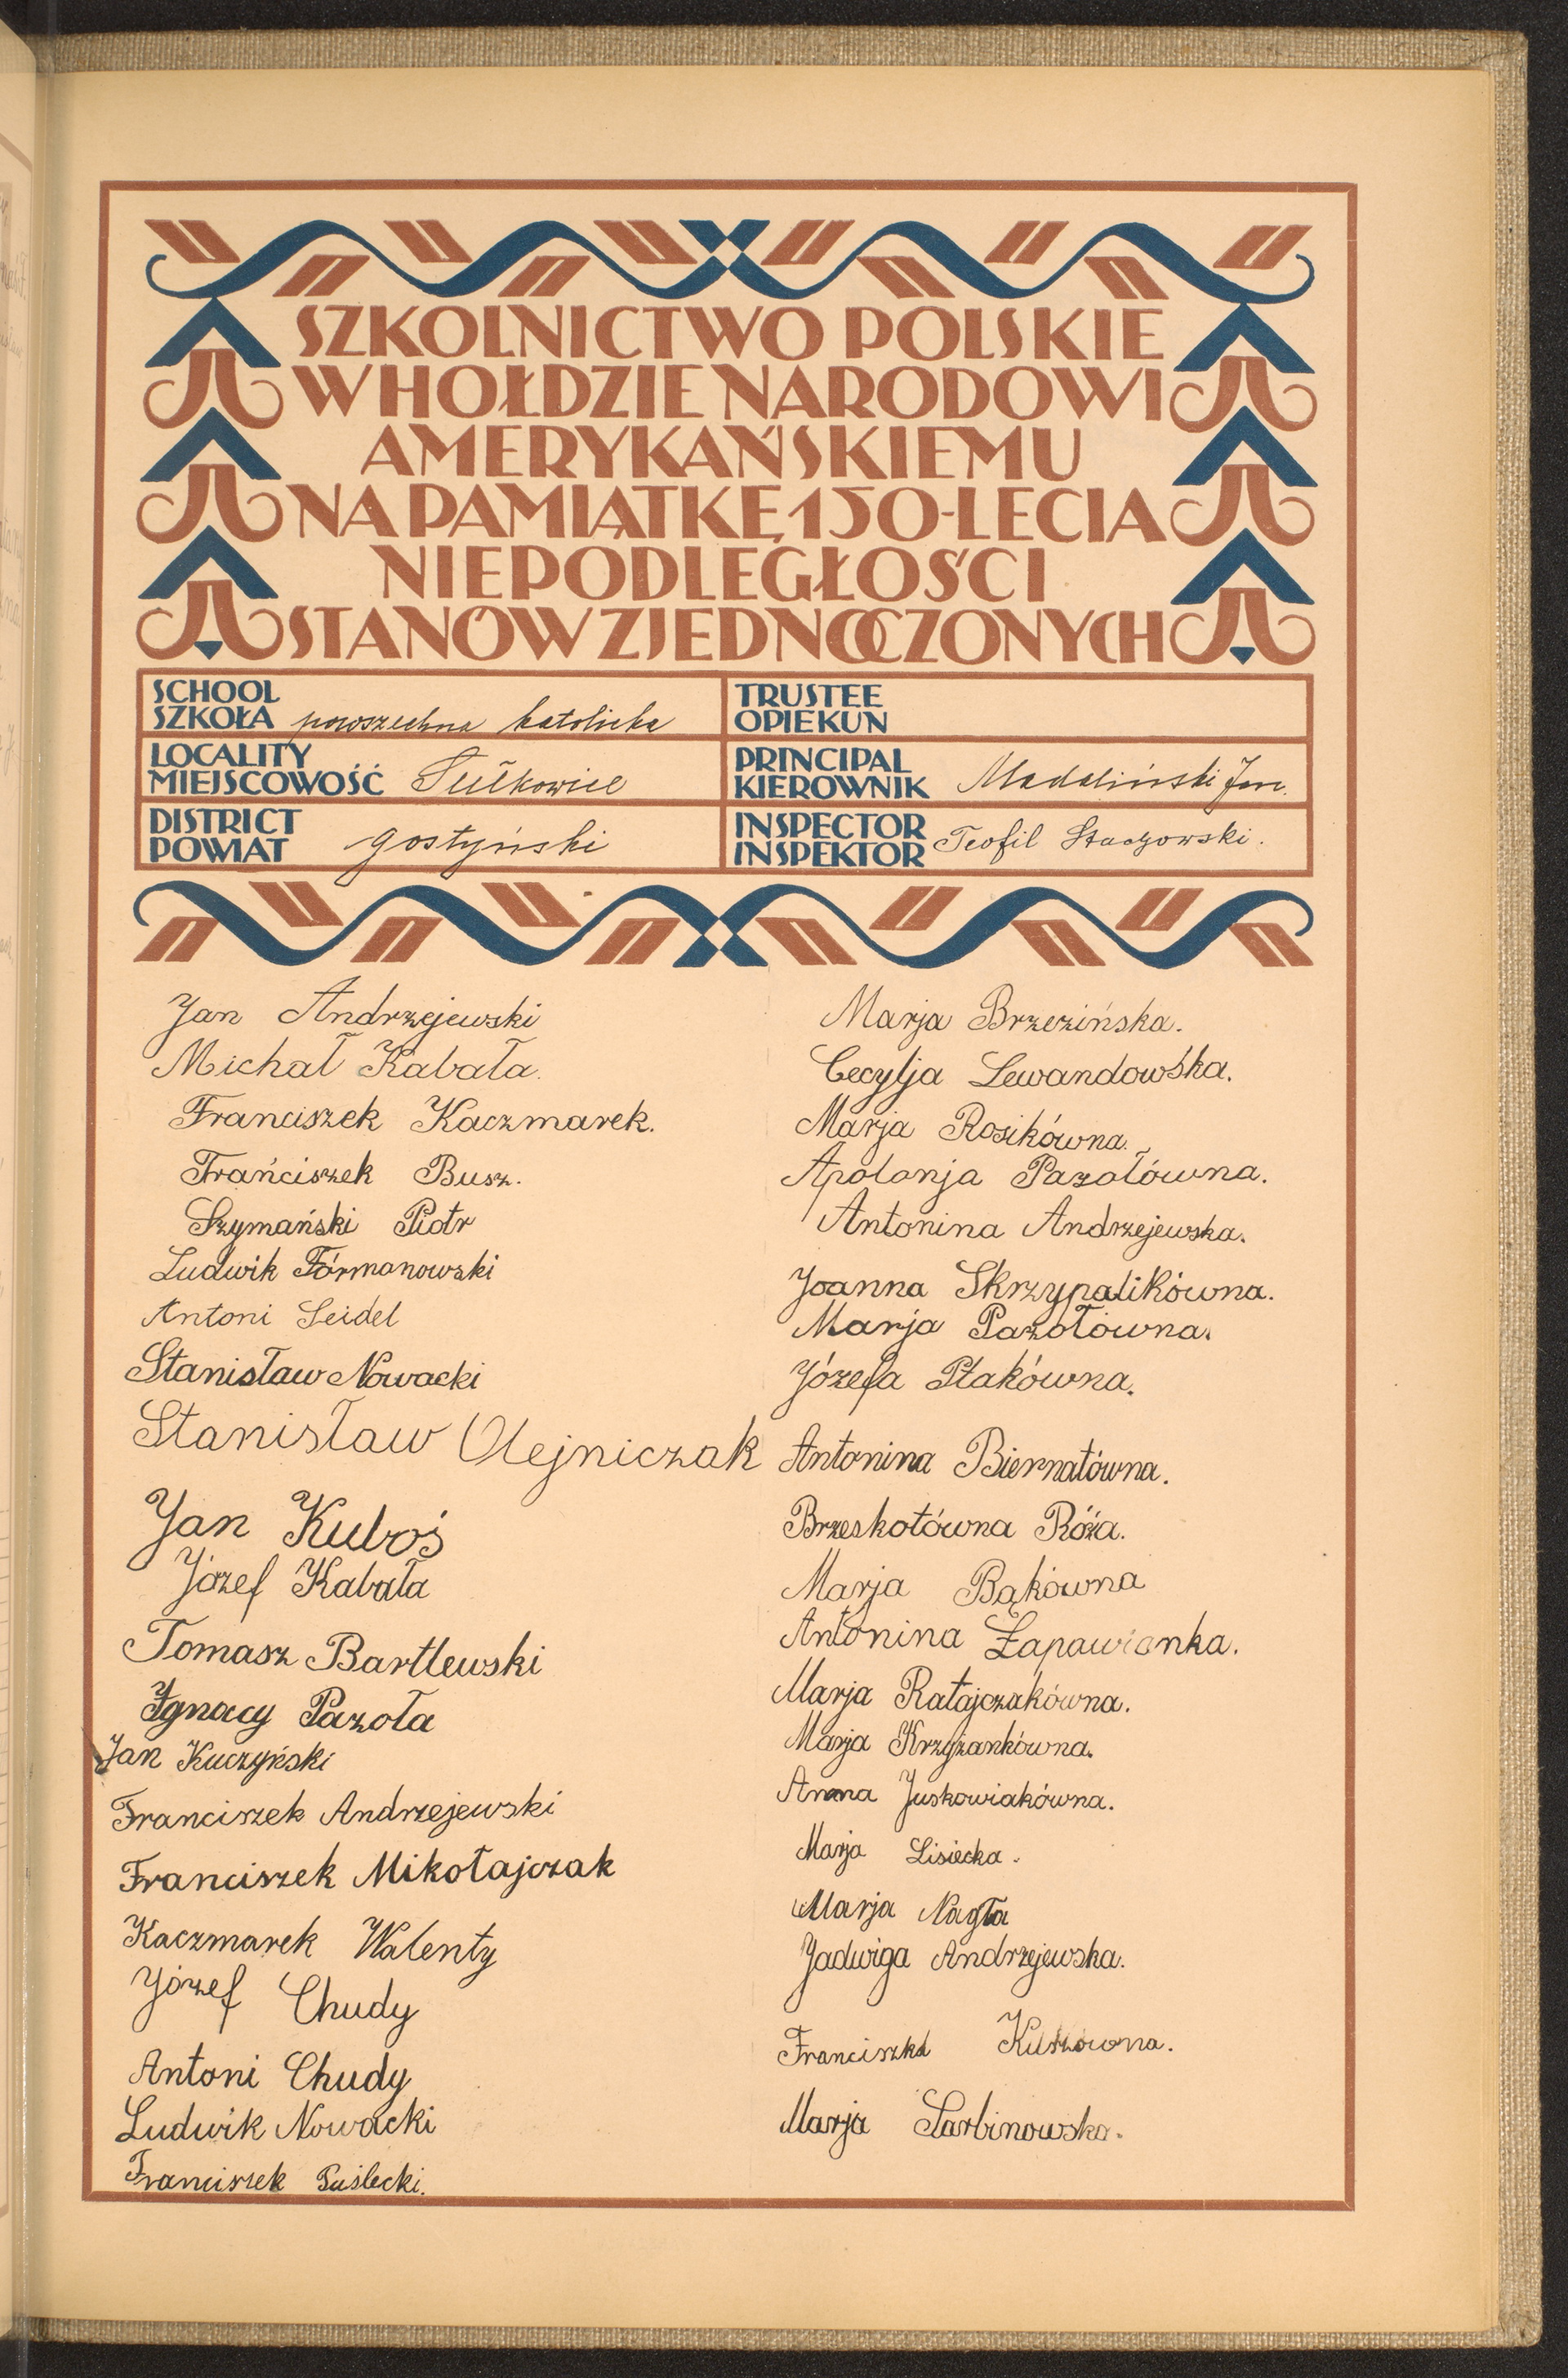 SZKOLNICTWO POLSKIE
W HOŁDZIE NARODOWI
AMERYKAŃSKIEMU
NA PAMIĄTKĘ 150-LECIA
NIEPODLEGŁOŚCI
STANÓW ZJEDNOCZONYCH
SCHOOL
SZKOŁA powszechna katolicka
LOCALITY
MIEJSCOWOŚĆ Sułkowice
DISTRICT
POWIAT gostyński
TRUSTEE
OPIEKUN
PRINCIPAL
KIEROWNIK Madaliński Jan.
INSPECTOR
INSPEKTOR Teofil Staczowski.
Jan Andrzejewski
Michał Kabała.
Franciszek Kaczmarek.
Frańciszek Busz.
Szymański Piotr
Ludwik Fórmanowski
Antoni Seidel
Stanisław Nowacki
Stanisław Olejniczak
Jan Kuboś
Józef Kabała
Tomasz Bartlewski
Ignacy Pazoła
Jan Kuczyński
Franciszek Andrzejewski
Franciszek Mikołajczak
Kaczmarek Walenty
Józef Chudy
Antoni Chudy
Ludwik Nowacki
Franciszek Puślecki.
Marja Brzezińska.
Cecylja Lewandowska.
Marja Rosikówna.
Apolonja Pazołówna.
Antonina Andrzejewska.
Joanna Skrzypalikówna.
Marja Pazołówna.
Józefa Ptakówna.
Antonina Biernatówna.
Brzeskotówna Róża.
Marja Bąkówna
Antonina Łapawianka.
Marja Ratajczakówna.
Marja Krzyżankówna.
Anna Juskowiakówna.
Marja Lisiecka.
Marja Nagła
Jadwiga Andrzejewska.
Franciszka
Marja Sarbinowska.